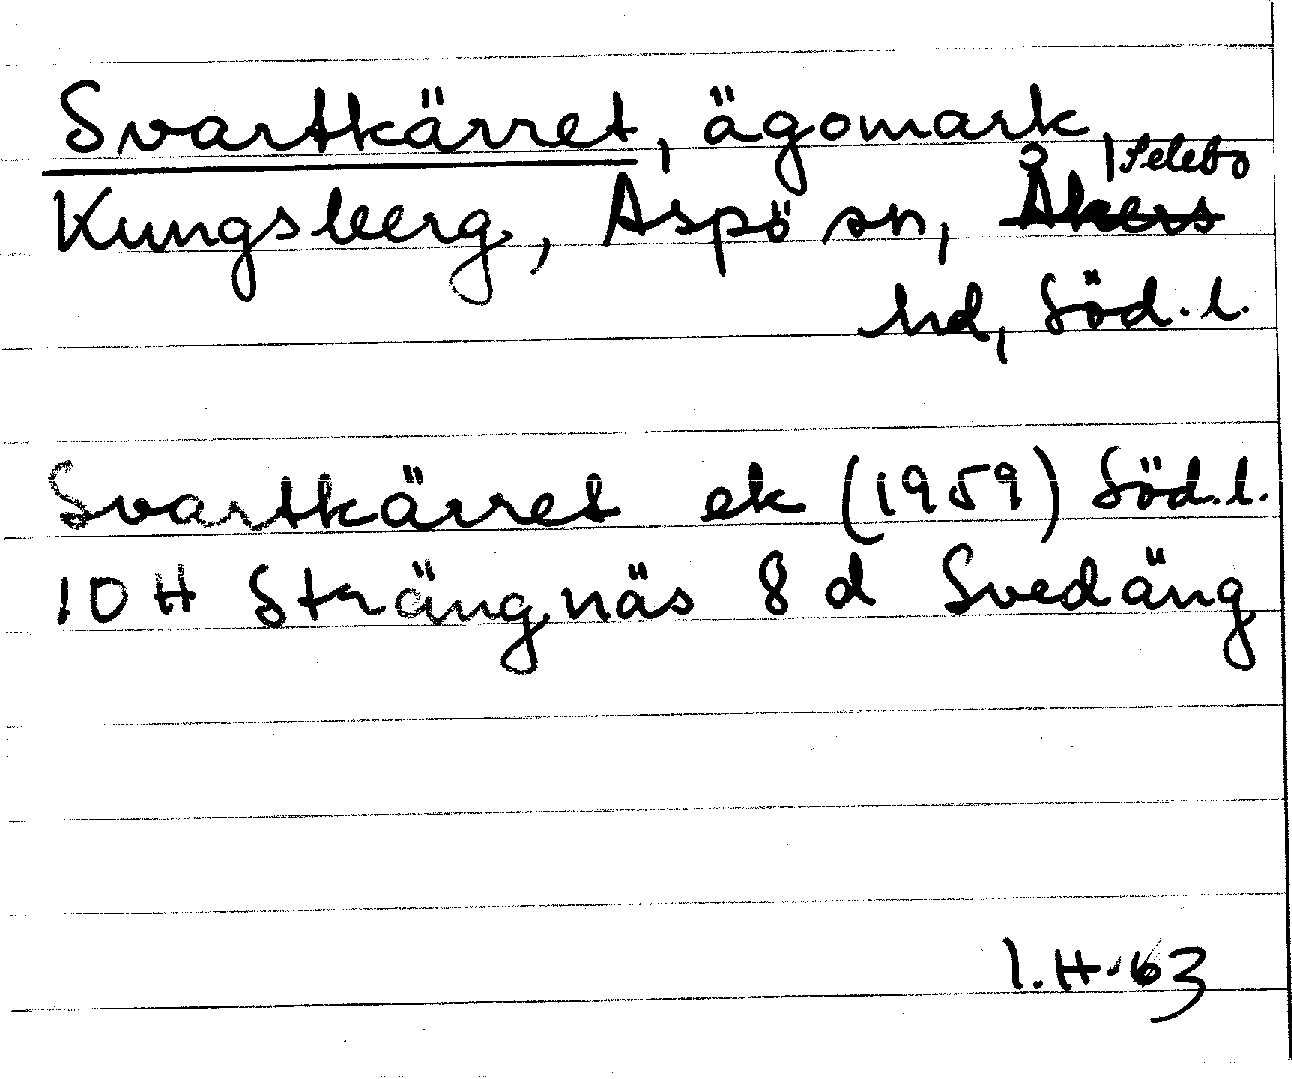 Svartkärret, ägomark
Kungsberg, Aspö sn, Åkers Selebo
hd, Söd.l.
Svartkärret ek (1959) Söd.l.
10 H Strängnäs 8 d Svedäng
I.H. 63